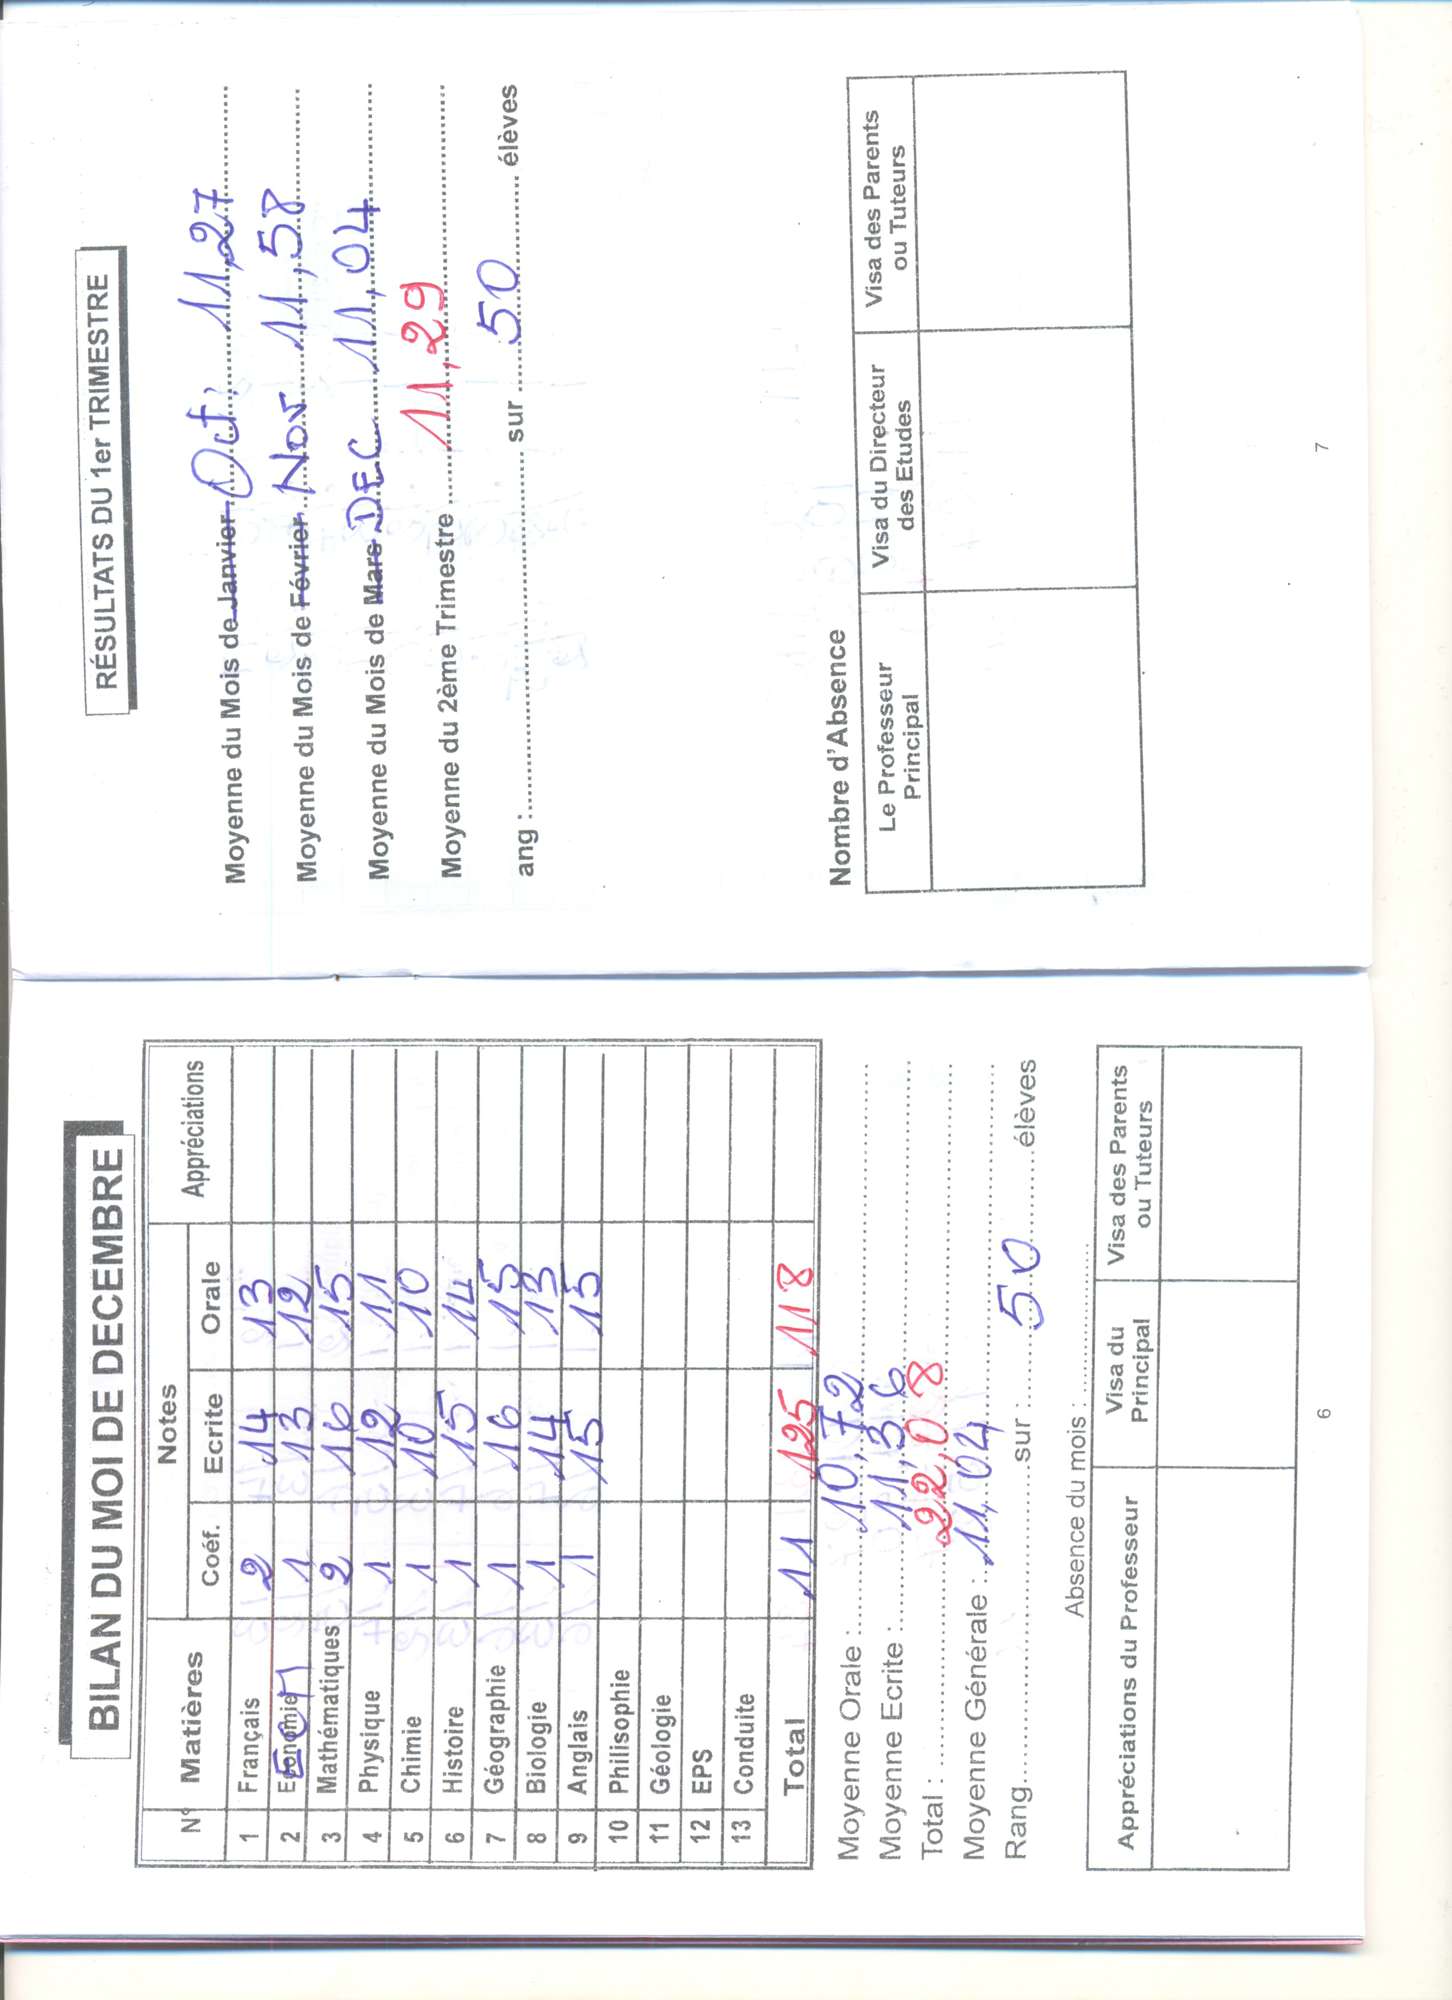 BILAN DU MOI DE DECEMBRE
N° Matières Notes Appréciations
Coéf. Ecrite Orale
1 Français 2 14 13
2 Economie Econ 1 13 12
3 Mathématiques 2 16 15
4 Physique 1 12 11
5 Chimie 1 10 10
6 Histoire 1 15 14
7 Géographie 1 16 15
8 Biologie 1 14 13
9 Anglais 1 15 15
10 Philisophie
11 Géologie
12 EPS
13 Conduite
Total 11 125 118
Moyenne Orale : 10,72
Moyenne Ecrite : 11,36
Total : 22,08
Moyenne Générale : 11,04
Rang sur : 50 élèves
Absence du mois :
Appréciations du Professeur Visa du Principal Visa des Parents ou Tuteurs
6
RÉSULTATS DU 1er TRIMESTRE
Moyenne du Mois de Janvier Oct 11,27
Moyenne du Mois de Février Nov 11,58
Moyenne du Mois de Mars DEC 11,04
Moyenne du 2ème Trimestre 11,29
ang : sur 50 élèves
Nombre d'Absence
Le Professeur Principal Visa du Directeur des Etudes Visa des Parents ou Tuteurs
7